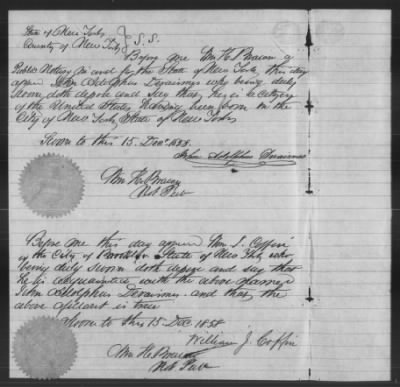 State of New York } S.S.
County of New York
Before me Wm H. Bra a
Public Notary in and for the State of New York, this day
appear John Adolphus who being duly
sworn doth depose and say that, he is a citizen
of the United States, having been born in the
City of New York, State of New York
Sworn to this 15 Dec. 1858.
John Adolphus
Wm H.
Not. Pub
Before me this day appear Wm J. Coffin
of the City of State of New York who
being duly sworn doth depose and say that
he is acquainted with the above
John Adolphus and that, the
above affidavit is true
Sworn to this 15 Dec 1858
William J. Coffin
Wm H.
Not Pub